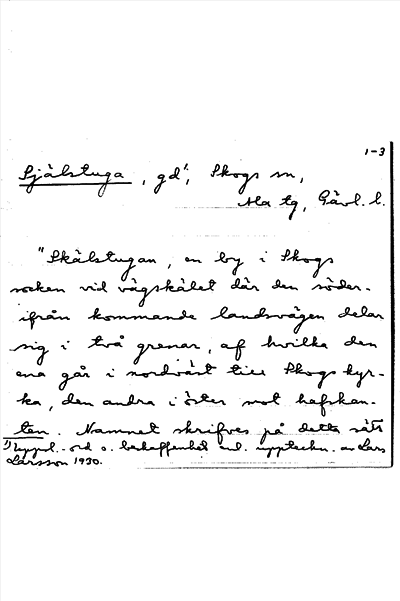 1-3
Själstuga, gd¹, Skogs sn,
Ala tg, Gävl. l.
"Skälstugan, en by i Skogs
socken vid vägskälet där den söder-
ifrån kommande landsvägen delar
sig i två grenar, af hvilka den
ena går i nordväst till Skogs kyr-
ka, den andra i öster mot hafskan-
ten. Namnet skrifves på detta sätt
¹) Uppl. ord o. beskaffenhet enl. uppteckn. av Lars
Larsson 1930.